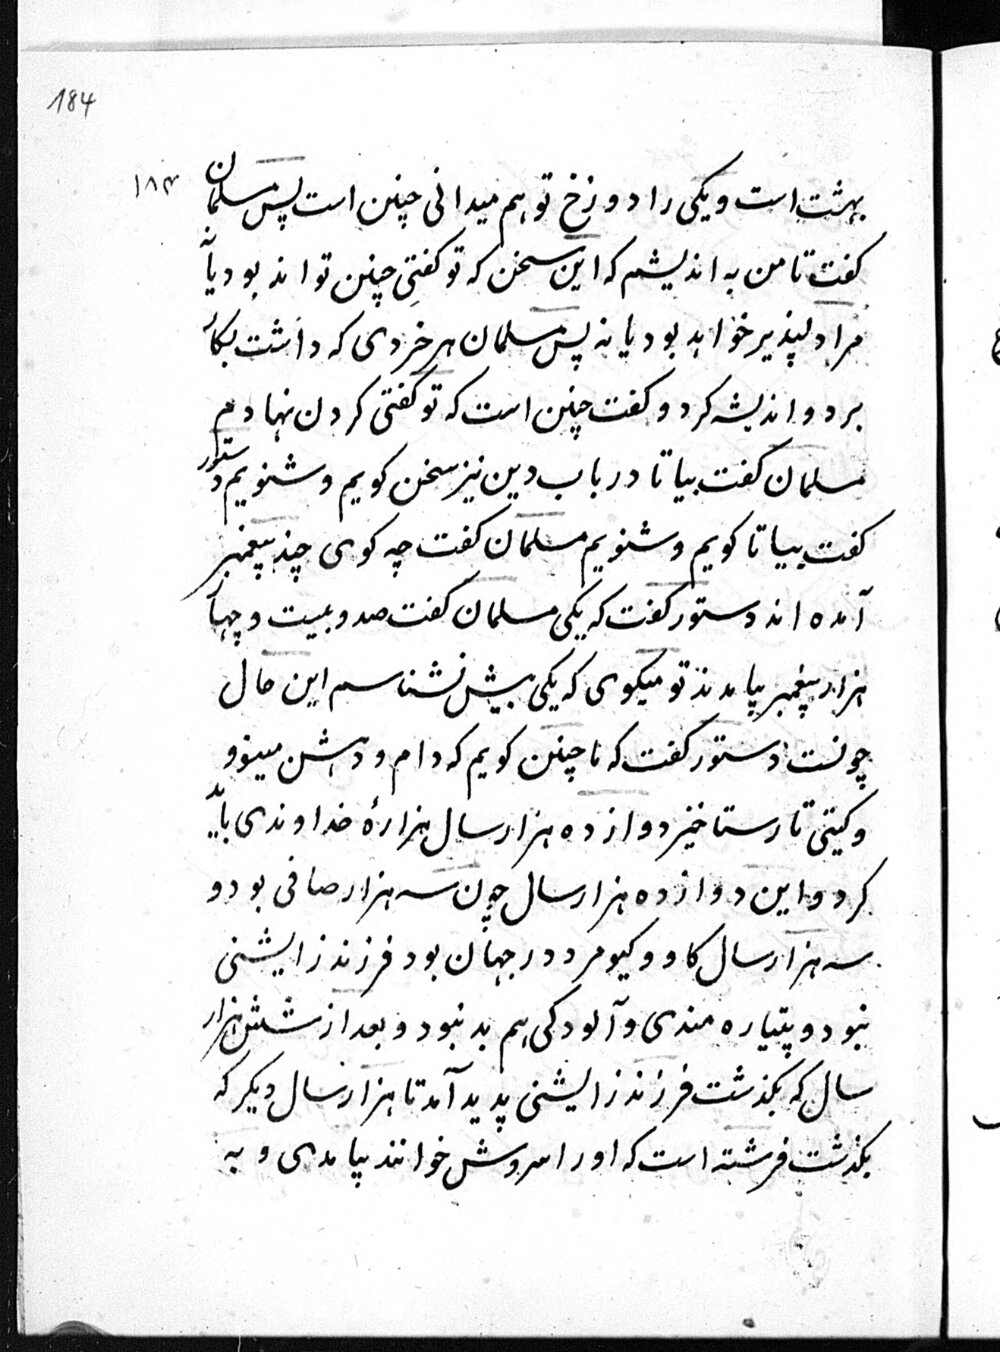 184
۱۸۴
بهشت است و یکی را دوزخ تو هم میدانی چنین است پس مسلمان
کفت تا من به اندیشم که این سخن که تو کفتی چنین تواند بود یا
مرا دلپذیر خواهد بود یا نه پس مسلمان هر خردی که داشت بکار
برد و اندیشه کرد و کفت چنین است که تو کفتی کردن نهادم
مسلمان کفت بیا تا در باب دین نیز سخن کویم و شنویم دستور
کفت بیا تا کویم و شنویم مسلمان کفت چه کوی چند پیغمبر
آمده اند دستور کفت که یکی مسلمان کفت صد و بیست و چهار
هزار پیغمبر بیامدند تو میکوی که یکی بیش نشناسم این حال
چونست دستور کفت که ما چنین کویم که دام و دهشن مینو و
و کیتی تا رستاخیز دوازده هزار سال هزارهٔ خداوندی باید
کرد و این دوازده هزار سال چون سه هزار صافی بود و
سه هزار سال کاو و کیومرد در جهان بود فرزند زایشنی
نبود و پتیاره مندی و آلودکی هم بد نبود و بعد از شش هزار
سال که بکذشت فرزند زایشنی پدید آمد تا هزار سال دیکر که
بکذشت فرشته است که او را سروش خوانند بیامدی و به